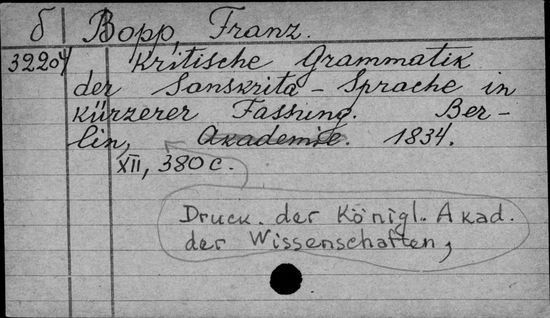 б Bopp, Franz.
32204 Kritische Grammatik
der Sanskrita-Sprache in
kürzerer Fassung. Ber-
lin, Akademie. 1834.
XII, 380 c.
Druck. der Königl. Akad.
der Wissenschaften,